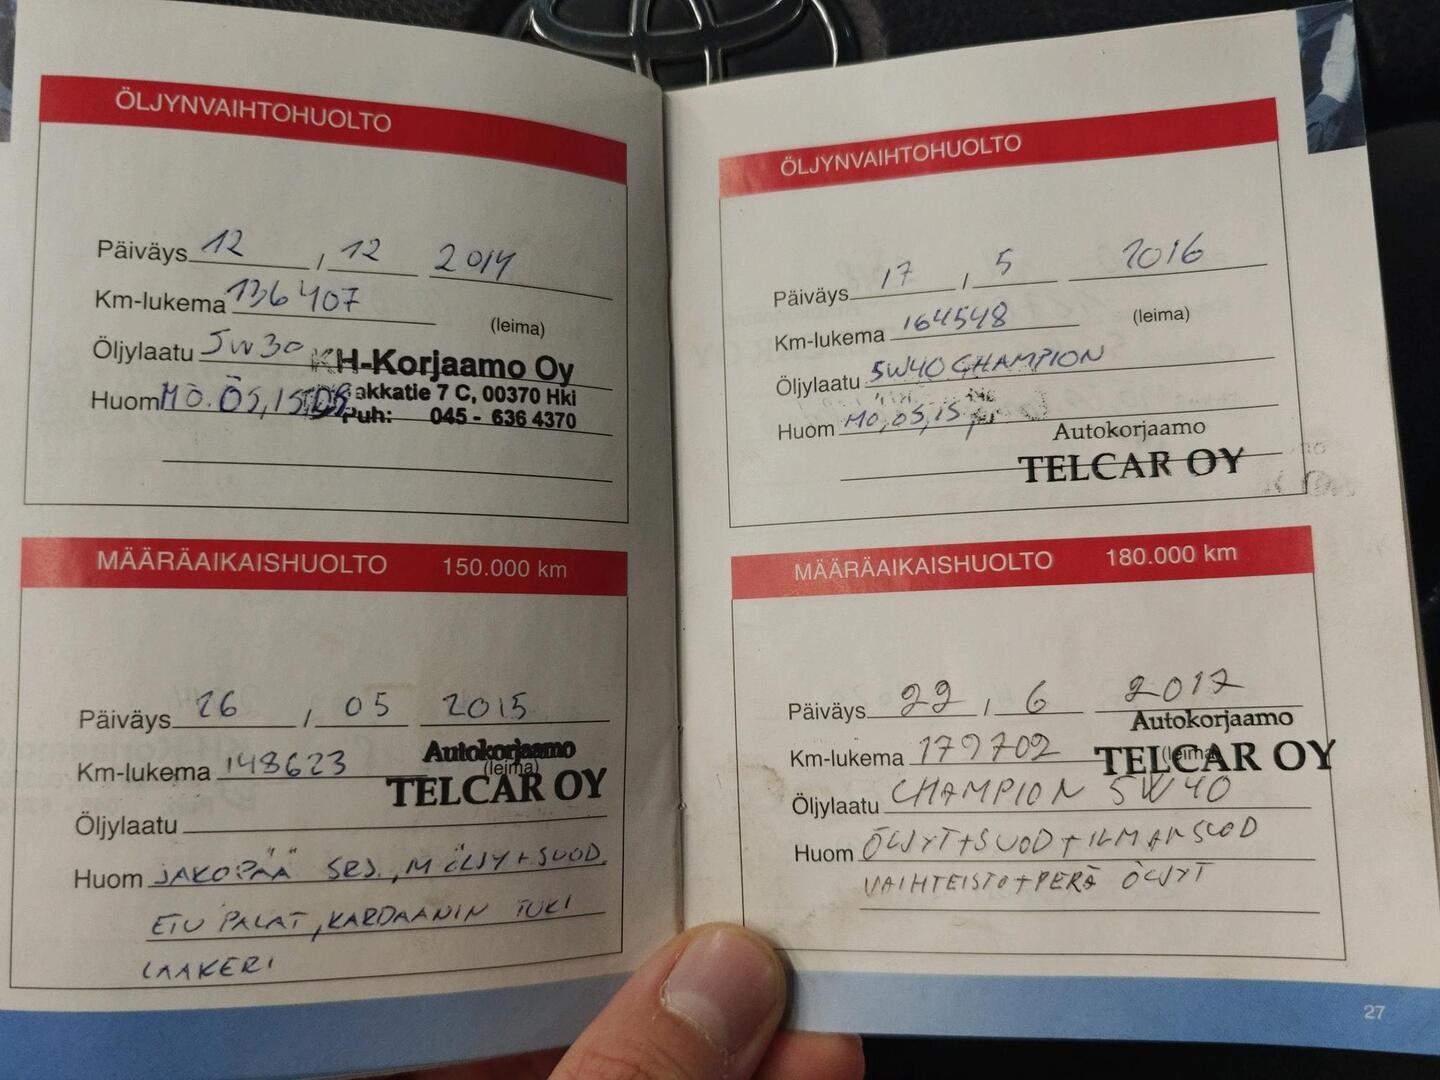 ÖLJYNVAIHTOHUOLTO
Päiväys 12 , 12 2014
Km-lukema 136407
(leima)
Öljylaatu 5W30
KH-Korjaamo Oy
akkatie 7 C, 00370 Hki
Huom MÖ. ÖS, IS,
Puh: 045 - 636 4370
MÄÄRÄAIKAISHUOLTO 150.000 km
Päiväys 26 , 05 2015
Km-lukema 148623
(leima)
Autokorjaamo
TELCAR OY
Öljylaatu
Huom JAKOPÄÄ SRJ., M ÖLJY + SUOD.
ETU PALAT, KARDAANIN TUKI
LAAKERI
ÖLJYNVAIHTOHUOLTO
Päiväys 17 , 5 2016
Km-lukema 164548
(leima)
Öljylaatu 5W40 CHAMPION
Huom MÖ, ÖS, IS,
Autokorjaamo
TELCAR OY
MÄÄRÄAIKAISHUOLTO 180.000 km
Päiväys 22 , 6 2017
Autokorjaamo
Km-lukema 179702
(leima)
TELCAR OY
Öljylaatu CHAMPION 5W40
Huom ÖLJYT + SUOD + ILMANSUOD
VAIHTEISTO + PERÄ ÖLJYT
27